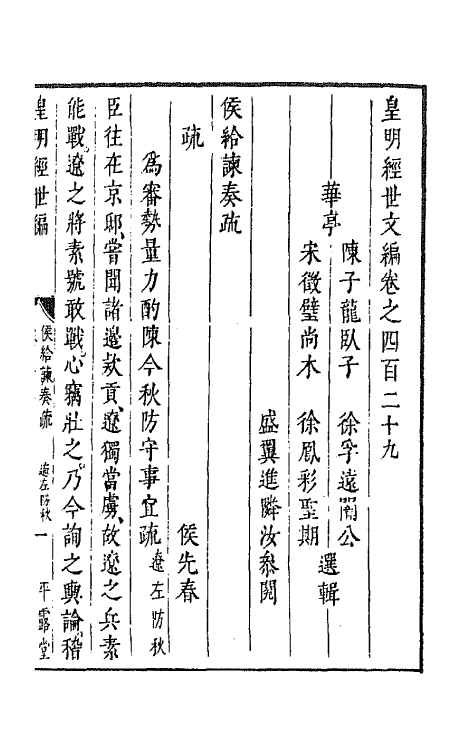 皇明經世文編卷之四百二十九
華亭
陳子龍臥子 徐孚遠闇公
宋徵璧尚木 徐鳳彩聖期
選輯
盛翼進隣汝叅閱
侯給諫奏疏
疏 侯先春
為審勢量力酌陳今秋防守事宜疏 遼左防秋
臣往在京邸嘗聞諸邊欵貢遼獨當虜故遼之兵素
能戰遼之將素號敢戰心竊壯之乃今詢之輿論稽
皇明經世編 侯給諫奏疏 遼左防秋 一 平露堂